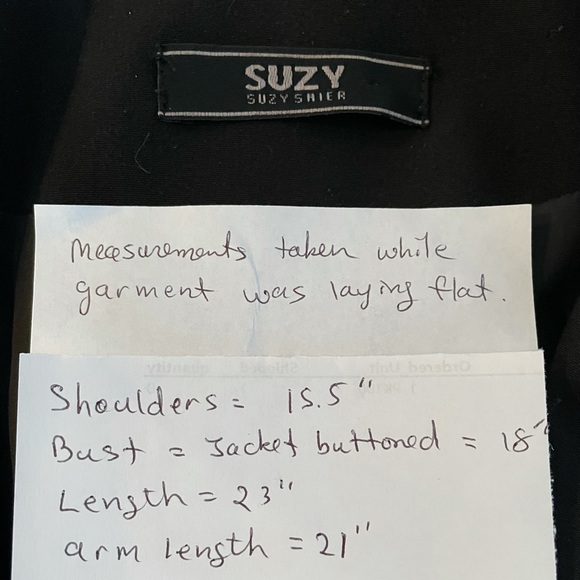 SUZY
SUZY SHIER
Measurements taken while
garment was laying flat.
Ordered Unit Shipped quantity
Shoulders = 15.5"
Bust = Jacket buttoned = 18"
Length = 23"
arm length = 21"